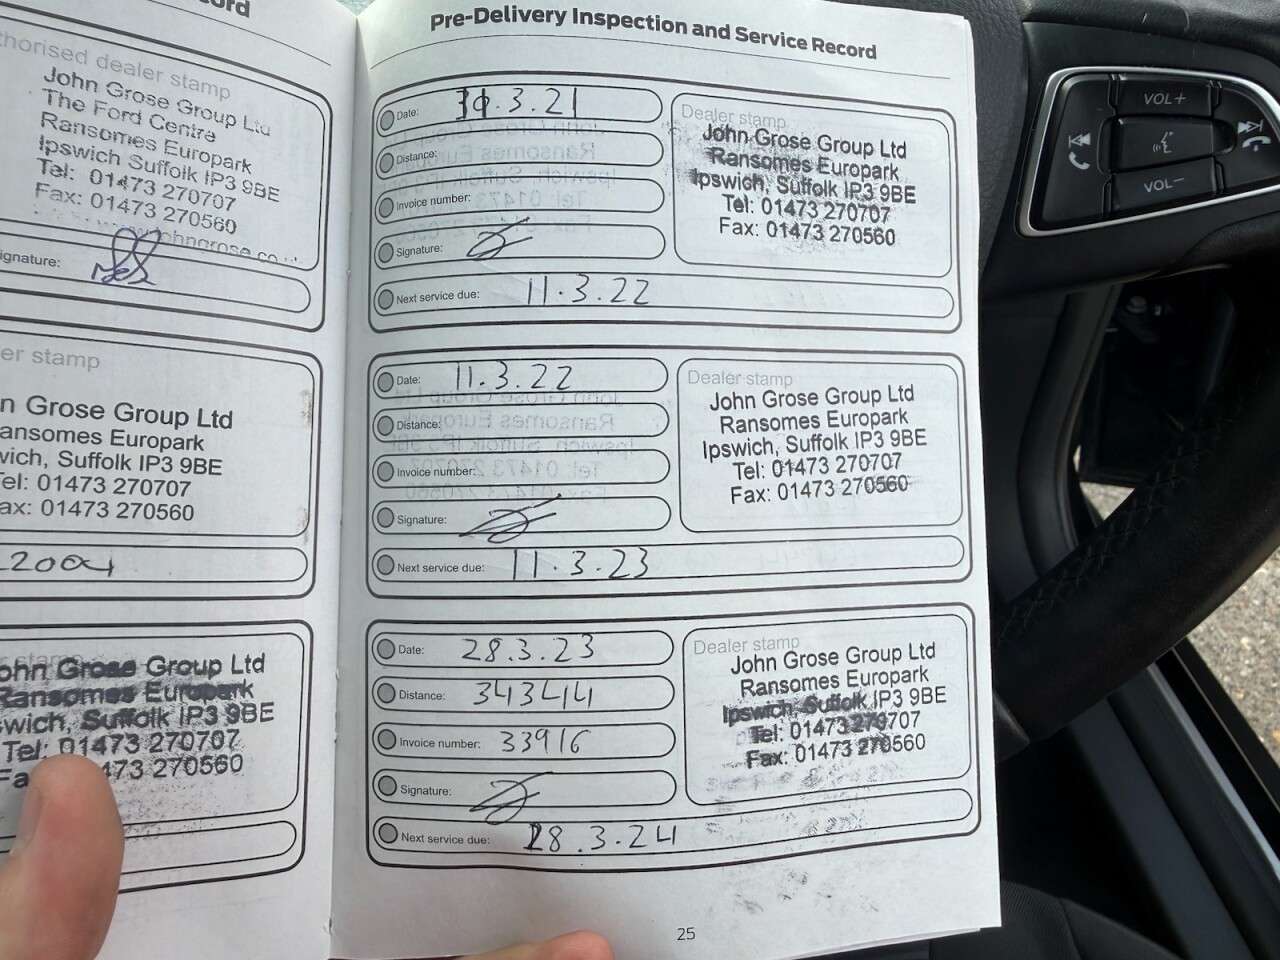 ord
thorised dealer stamp
John Grose Group Ltd
The Ford Centre
Ransomes Europark
Ipswich Suffolk IP3 9BE
Tel: 01473 270707
Fax: 01473 270560
ignature:
er stamp
n Grose Group Ltd
ansomes Europark
wich, Suffolk IP3 9BE
Tel: 01473 270707
ax: 01473 270560
ohn Grose Group Ltd
Ransomes Europark
swich, Suffolk IP3 9BE
Tel: 01473 270707
Fa 473 270560
Pre-Delivery Inspection and Service Record
Date: .3.21
Distance:
Invoice number:
Signature:
Next service due: 11.3.22
Dealer stamp
John Grose Group Ltd
Ransomes Europark
Ipswich, Suffolk IP3 9BE
Tel: 01473 270707
Fax: 01473 270560
Date: 11.3.22
Distance:
Invoice number:
Signature:
Next service due: 11.3.23
Dealer stamp
John Grose Group Ltd
Ransomes Europark
Ipswich, Suffolk IP3 9BE
Tel: 01473 270707
Fax: 01473 270560
Date: 28.3.23
Distance: 34344
Invoice number: 33916
Signature:
Next service due: 28.3.24
Dealer stamp
John Grose Group Ltd
Ransomes Europark
Ipswich, Suffolk IP3 9BE
Tel: 01473 270707
Fax: 01473 270560
25
VOL+
VOL−